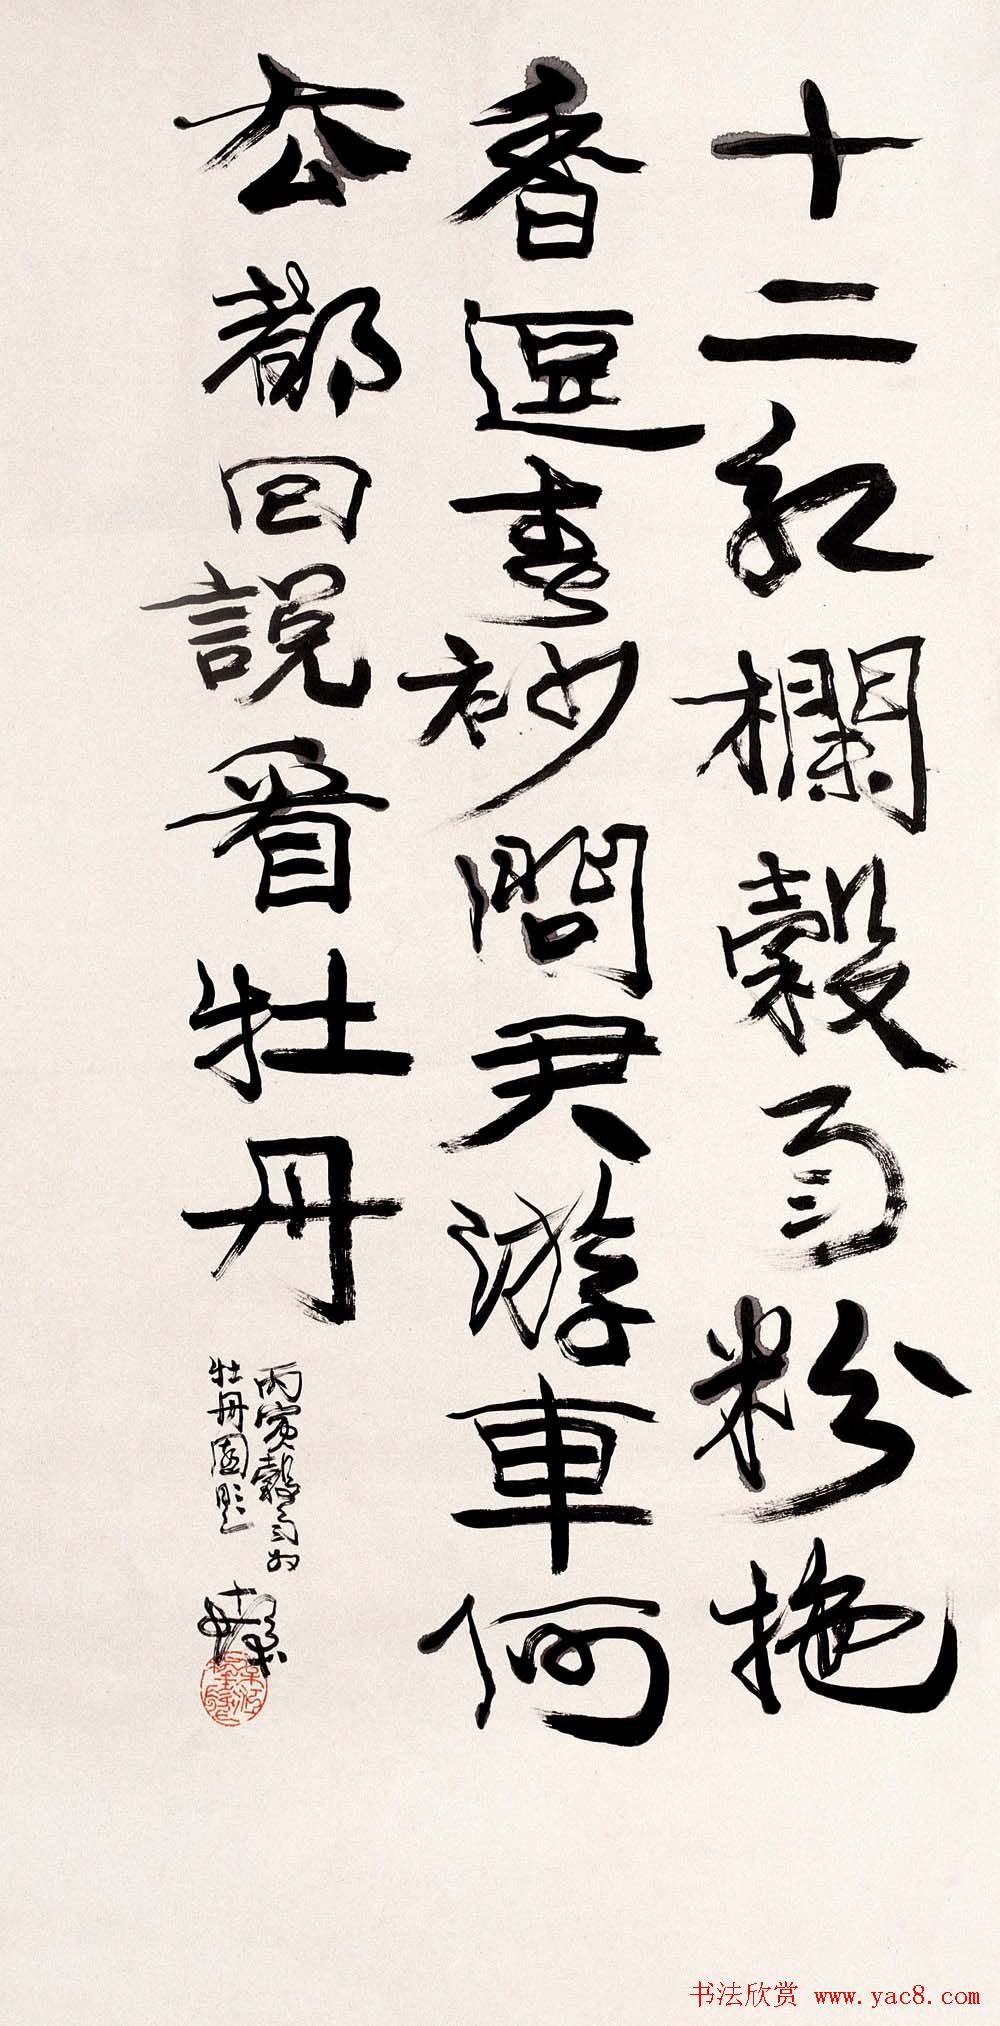 十二紅欄穀雨粉拖
香逗春衫問君游車何
去都回說看牡丹
丙寅穀雨於
牡丹園題
书法欣赏 www.yac8.com